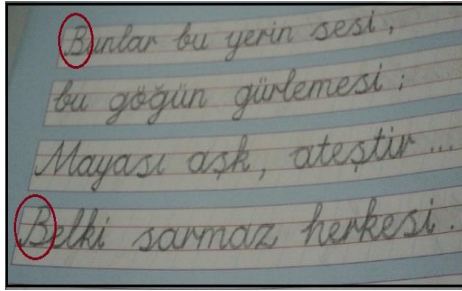 Bunlar bu yerin sesi,
bu göğün gürlemesi;
Mayası aşk, ateştir ...
Belki sarmaz herkesi.